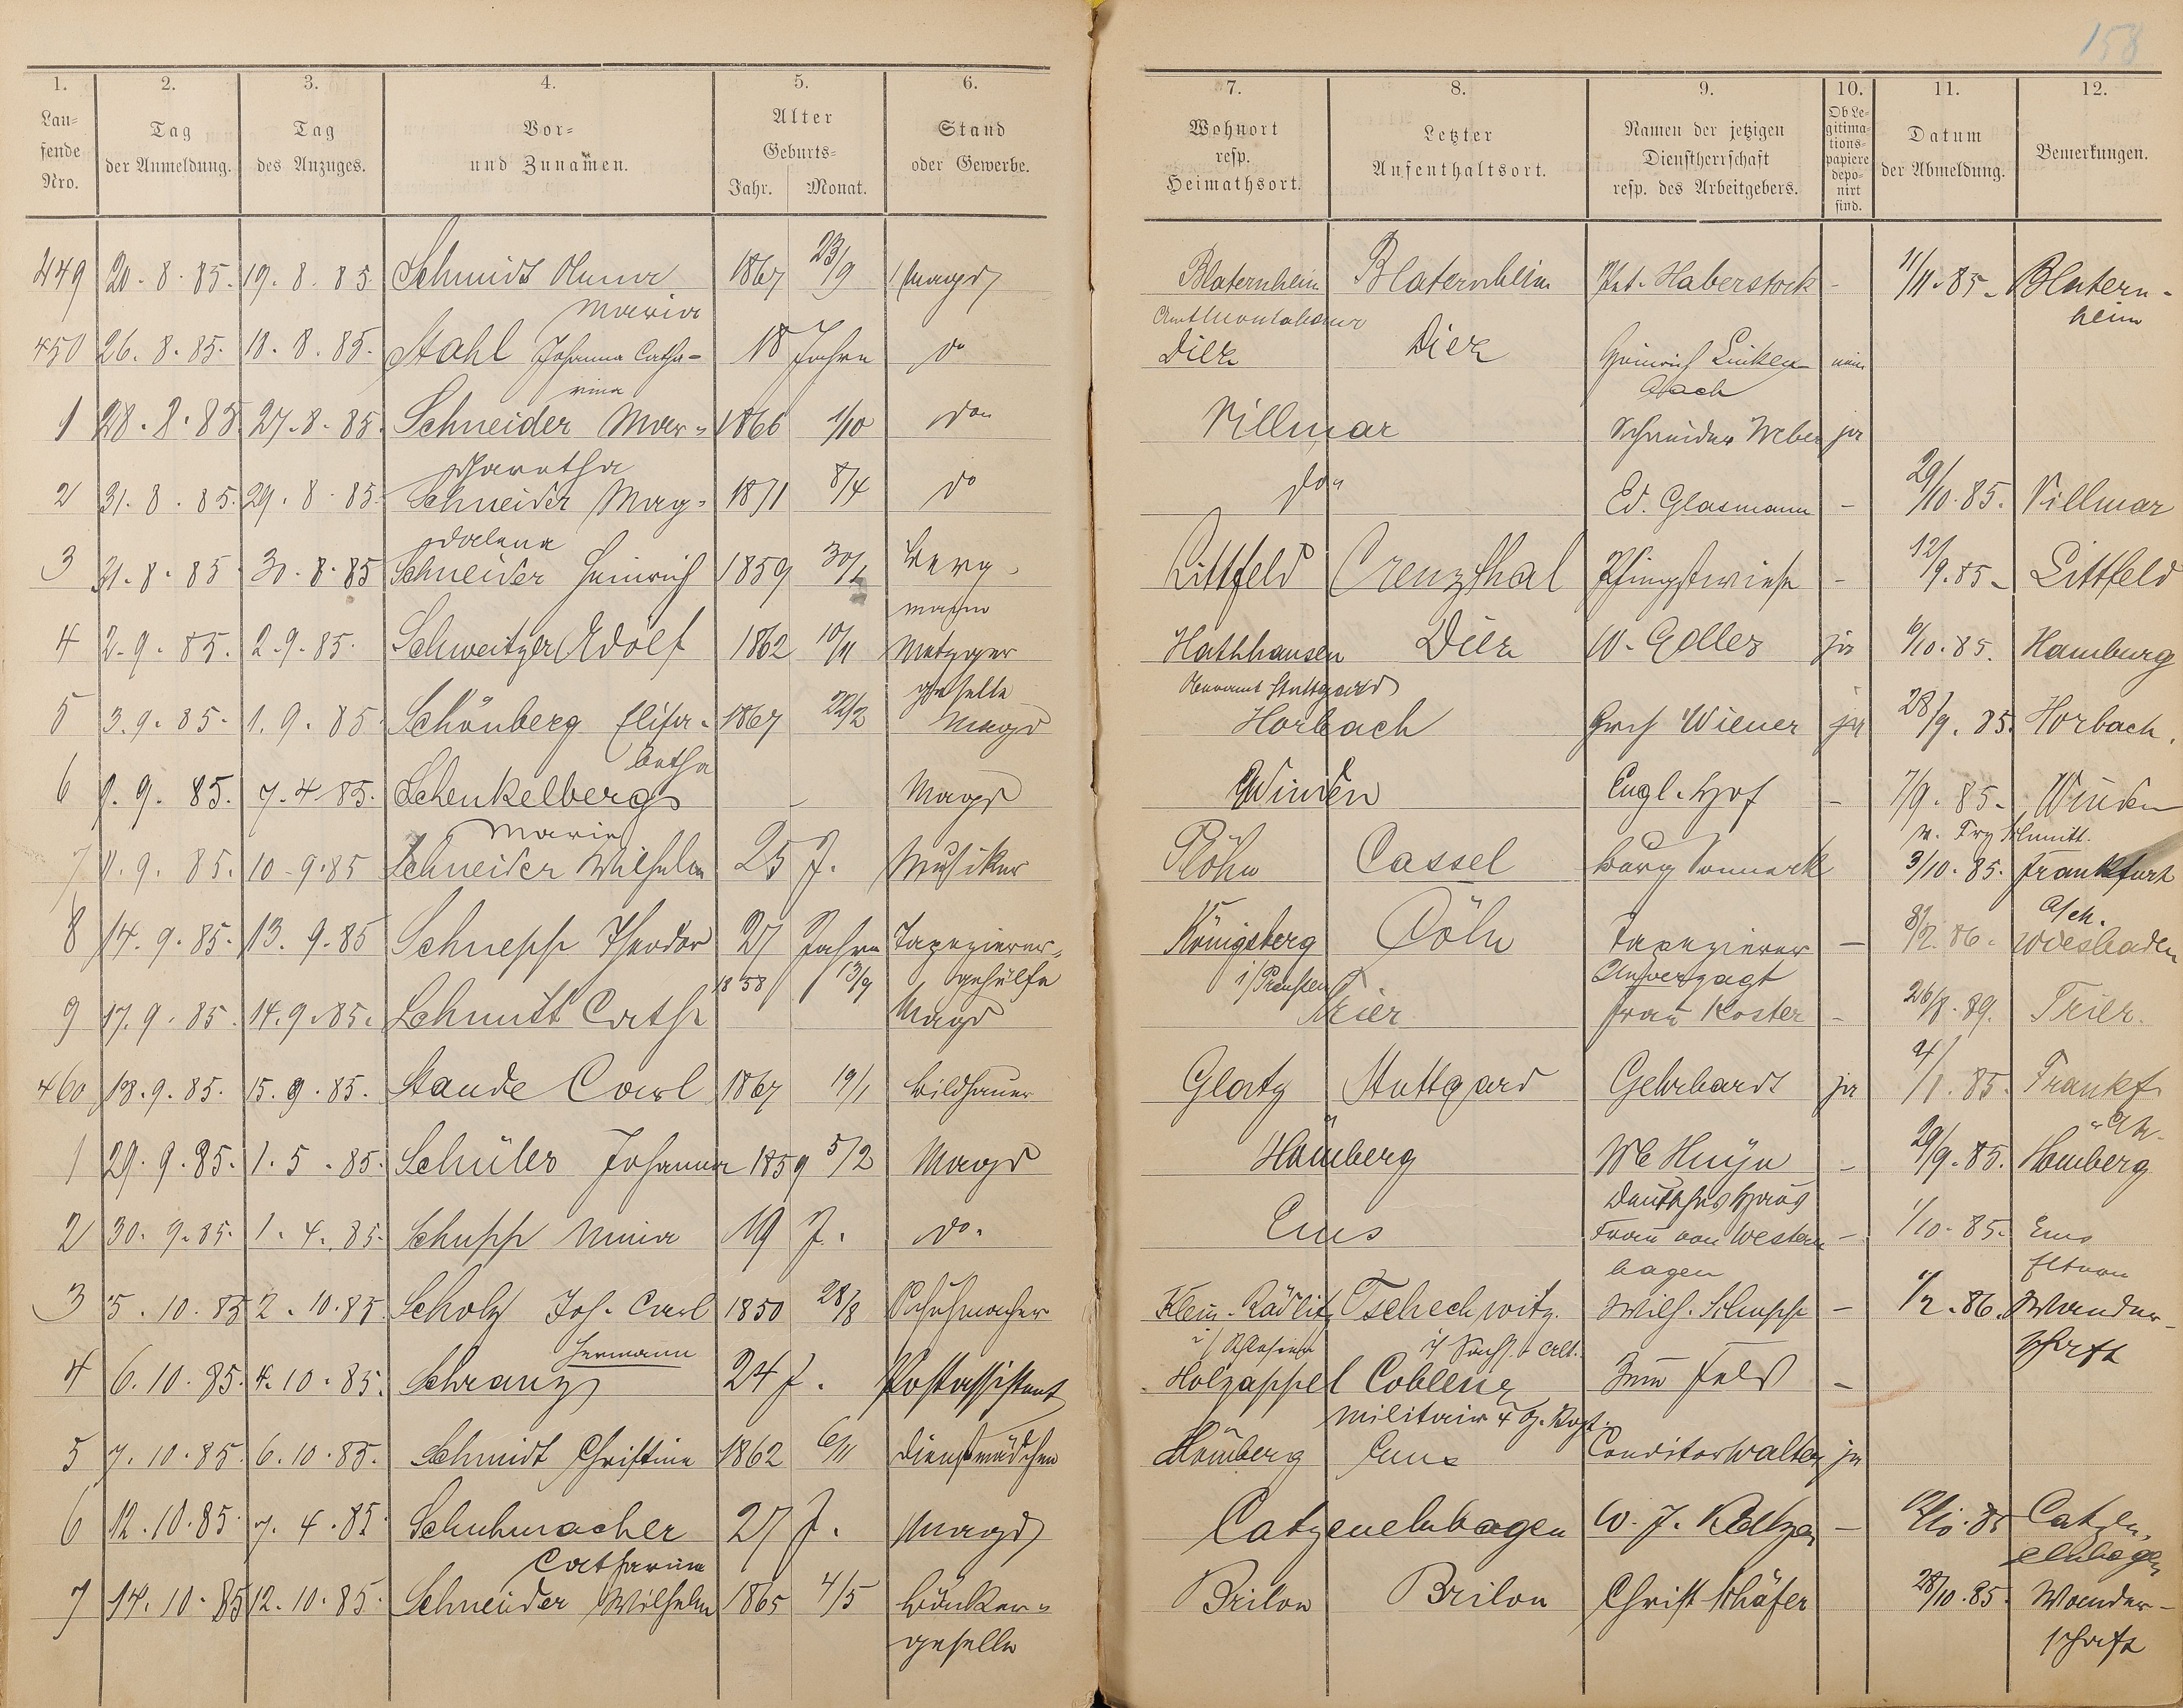 158
1. 2. 3. 4. 5. 6. 7. 8. 9. 10. 11. 12.
Laufende Nro. Tag der Anmeldung. Tag des Anzuges. Vor- und Zunamen. Alter Geburts- Jahr. Monat. Stand oder Gewerbe. Wohnort resp. Heimathsort. Letzter Aufenthaltsort. Namen der jetzigen Dienstherrschaft resp. des Arbeitgebers. Ob Legitimationspapiere deponirt sind. Datum der Abmeldung. Bemerkungen.
449 20. 8. 85. 19. 8. 85 Schmidt Anna 1867 23/9 Magd Blaternheim Blaternheim Haberstock - 11/11. 85. Blatern-
Maria heim
450 26. 8. 85. 18. 8. 85. Stahl Johanna Catha- 18 Jahre do Diez Diez Heinrich Linken- nein
rina bach
1 28. 8. 85 27. 8. 85. Schneider Mar- 1866 1/10 do Villmar Schneider Weber ja
garetha
2 31. 8. 85. 29. 8. 85. Schneider Mag- 1871 8/4 do do Ed. Glasmann - 29/10. 85. Villmar
dalena
3 31. 8. 85 30. 8. 85 Schneider Heinrich 1859 30/1 Berg- Littfeld Creuzthal Pfingstwiese - 12/9. 85. Littfeld
mann
4 2. 9. 85. 2. 9. 85. Schweitzer Adolf 1862 10/11 Metzger Diez W. ja 6/10. 85. Hamburg
geselle Oberamt Stuttgard
5 3. 9. 85. 1. 9. 85. Schönberg Elisa- 1867 22/2 Magd Horbach Wiener ja 28/9. 85. Horbach.
betha
6 9. 9. 85. 7. 4. 85. Schenkelberg - Magd Winden Engl. Hof - 7/9. 85. Winden
Marie
7 11. 9. 85. 10. 9. 85 Schneider Wilhelm 25 J. Musiker Cassel 3/10. 85. Frankfurt
8 14. 9. 85. 13. 9. 85 Schnepp Theodor 27 Jahre Tapezierer- Königsberg Cöln Tapezierer - 8/2. 86. Wiesbaden
1858 13/9 gehülfe i/Preußen Unverzagt
9 17. 9. 85. 14. 9. 85. Schmitt Cath Magd Trier Frau Koster - 26/8. 89. Trier.
460 18. 9. 85. 15. 9. 85. Staude Carl 1867 19/1 Bildhauer Glatz Stuttgard Gehrhardt ja 85. Frankf.
a/M.
1 29. 9. 85. 1. 5. 85. Schüler Johanna 1859 5/2 Magd Hömberg - 29/9. 85. Hömberg
Deutsches Haus
2 30. 9. 85. 1. 4. 85. Schupp Mina 19 J. do. Ems Frau von Westen- - 1/10. 85. Ems
hagen
3 5. 10. 85 2. 10. 85. Scholz Joh. Carl 1850 28/8 Schuhmacher Klein-Rädlitz Tschechwitz. Wilh. Schupp - 1/2. 86. Wander-
Hermann i/Schlesien schaft
4 6. 10. 85. 4. 10. 85. Schranz 24 J. Postassistent Holzappel Coblenz -
Militair
5 7. 10. 85. 6. 10. 85. Schmidt Christine 1862 6/11 Dienstmädchen Hömberg Ems Conditor Walter ja
6 12. 10. 85. 7. 4. 85 Schuhmacher 27 J. Magd Catzenelnbogen W. J. - 12/10. 85 Catzen-
Catharina elnbogen
7 14. 10. 85 12. 10. 85. Schneider Wilhelm 1865 4/5 Bäcker- Brilon Brilon Christ Schäfer 28/10. 85. Wander-
geselle schaft